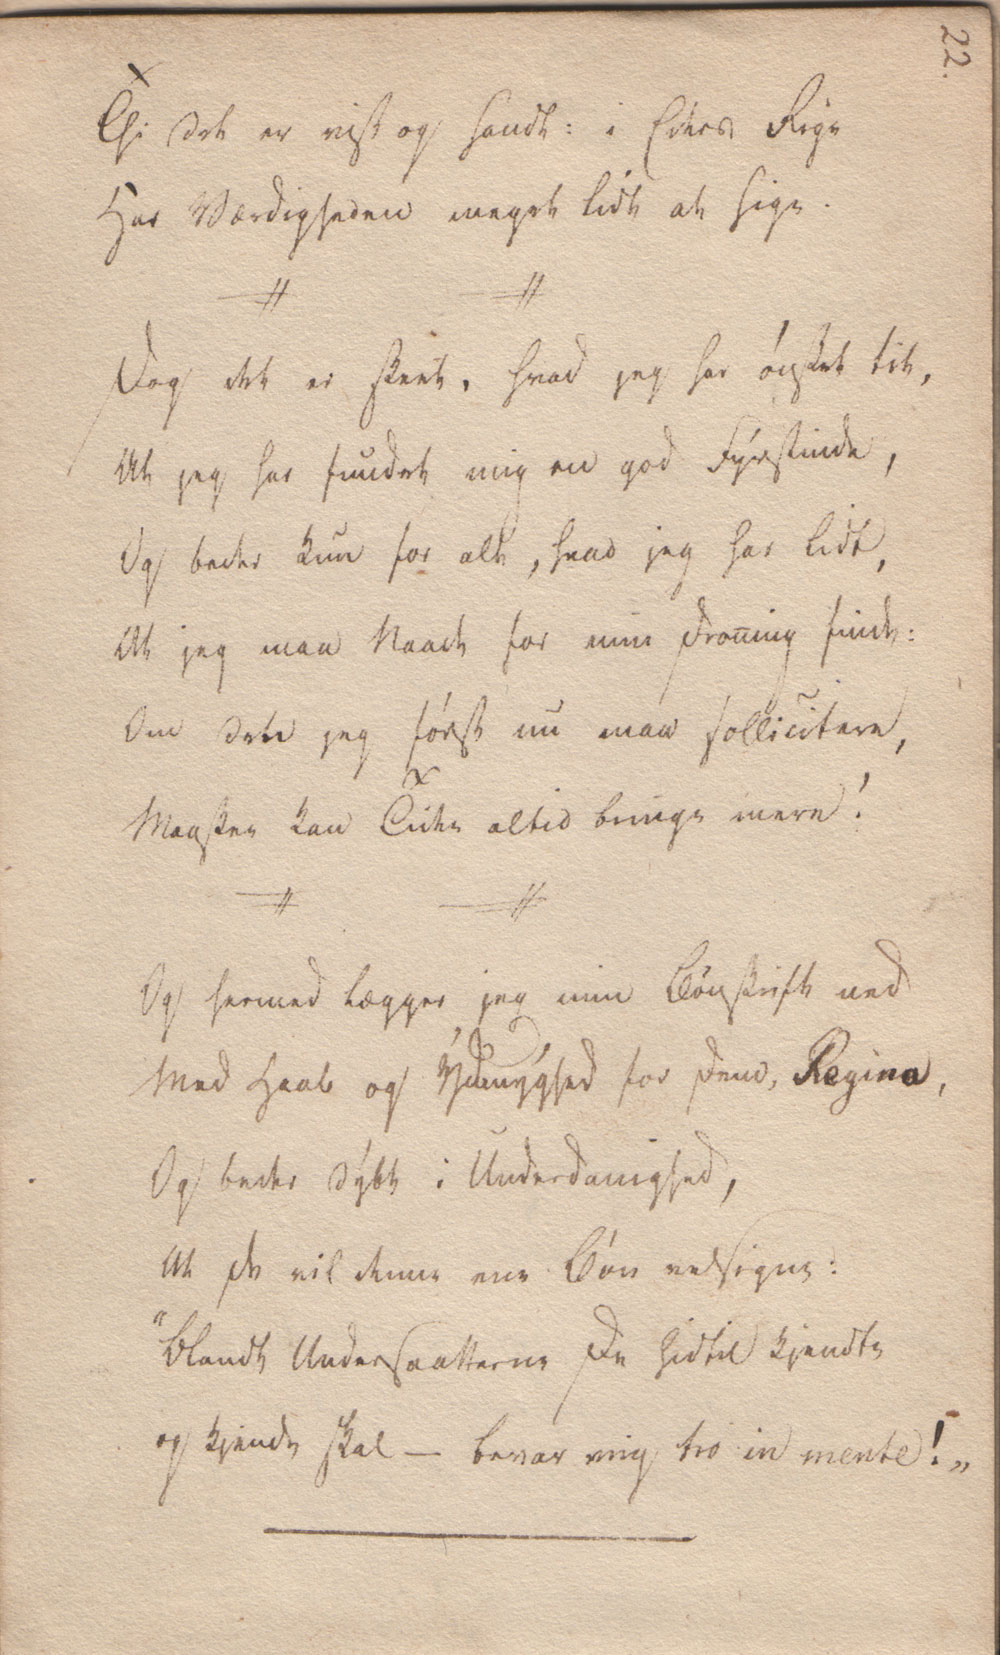 22.
Thi det er vist og sandt: i Eders Rige
Har Værdigheden meget lidt at sige.
Dog det er skeet, hvad jeg har ønsket tit,
At jeg har fundet mig en god Fyrstinde,
Og beder kun for alt, hvad jeg har lidt,
At jeg maa Naade for min Dronning finde:
Om det jeg først nu maa sollicitere,
Maaskee kan Tiden altid bringe mere!
Og hermed lægger jeg min Bønskrift ned
Med Haab og Ydmyghed for Dem, Regina,
Og beder dybt i Underdanighed,
At De vil denne ene Bøn velsigne:
"Blandt Undersaatterne De hidtil kjendte
og kjende skal — bevar mig tro in mente!"